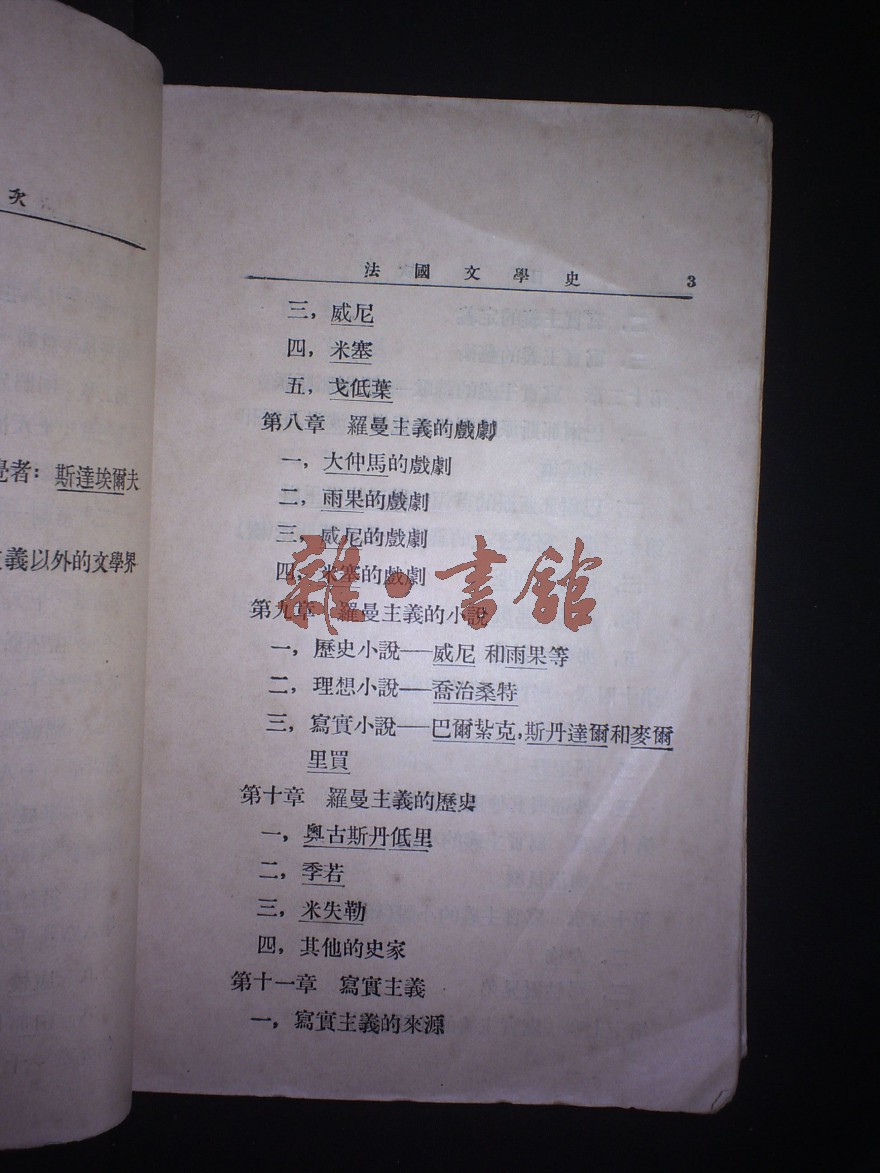 次
覺者：斯達埃爾夫
義以外的文學界
法國文學史 3
三，威尼
四，米塞
五，戈低葉
第八章 羅曼主義的戲劇
一，大仲馬的戲劇
二，雨果的戲劇
三，威尼的戲劇
四，米塞的戲劇
雜·書館
第九章 羅曼主義的小說
一，歷史小說——威尼 和雨果等
二，理想小說——喬治桑特
三，寫實小說——巴爾紮克，斯丹達爾和麥爾
里買
第十章 羅曼主義的歷史
一，奧古斯丹低里
二，季若
三，米失勒
四，其他的史家
第十一章 寫實主義
一，寫實主義的來源